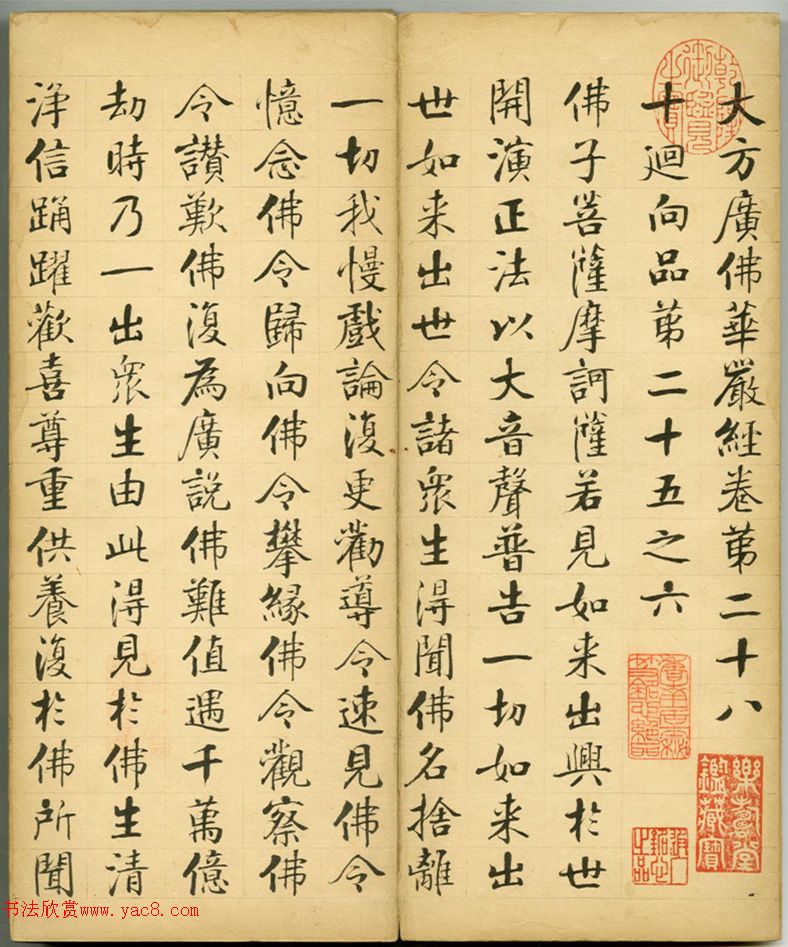 大方廣佛華嚴經卷第二十八
十廻向品第二十五之六
佛子菩薩摩訶薩若見如来出興於世
開演正法以大音聲普告一切如来出
世如来出世令諸衆生得聞佛名捨離
一切我慢戲論復更勸導令速見佛令
憶念佛令歸向佛令攀緣佛令觀察佛
令讃歎佛復為廣說佛難值遇千萬億
劫時乃一出衆生由此得見於佛生清
淨信踊躍歡喜尊重供養復於佛所聞
乾隆御覽之寶
樂壽堂鑑藏寶
书法欣赏www.yac8.com